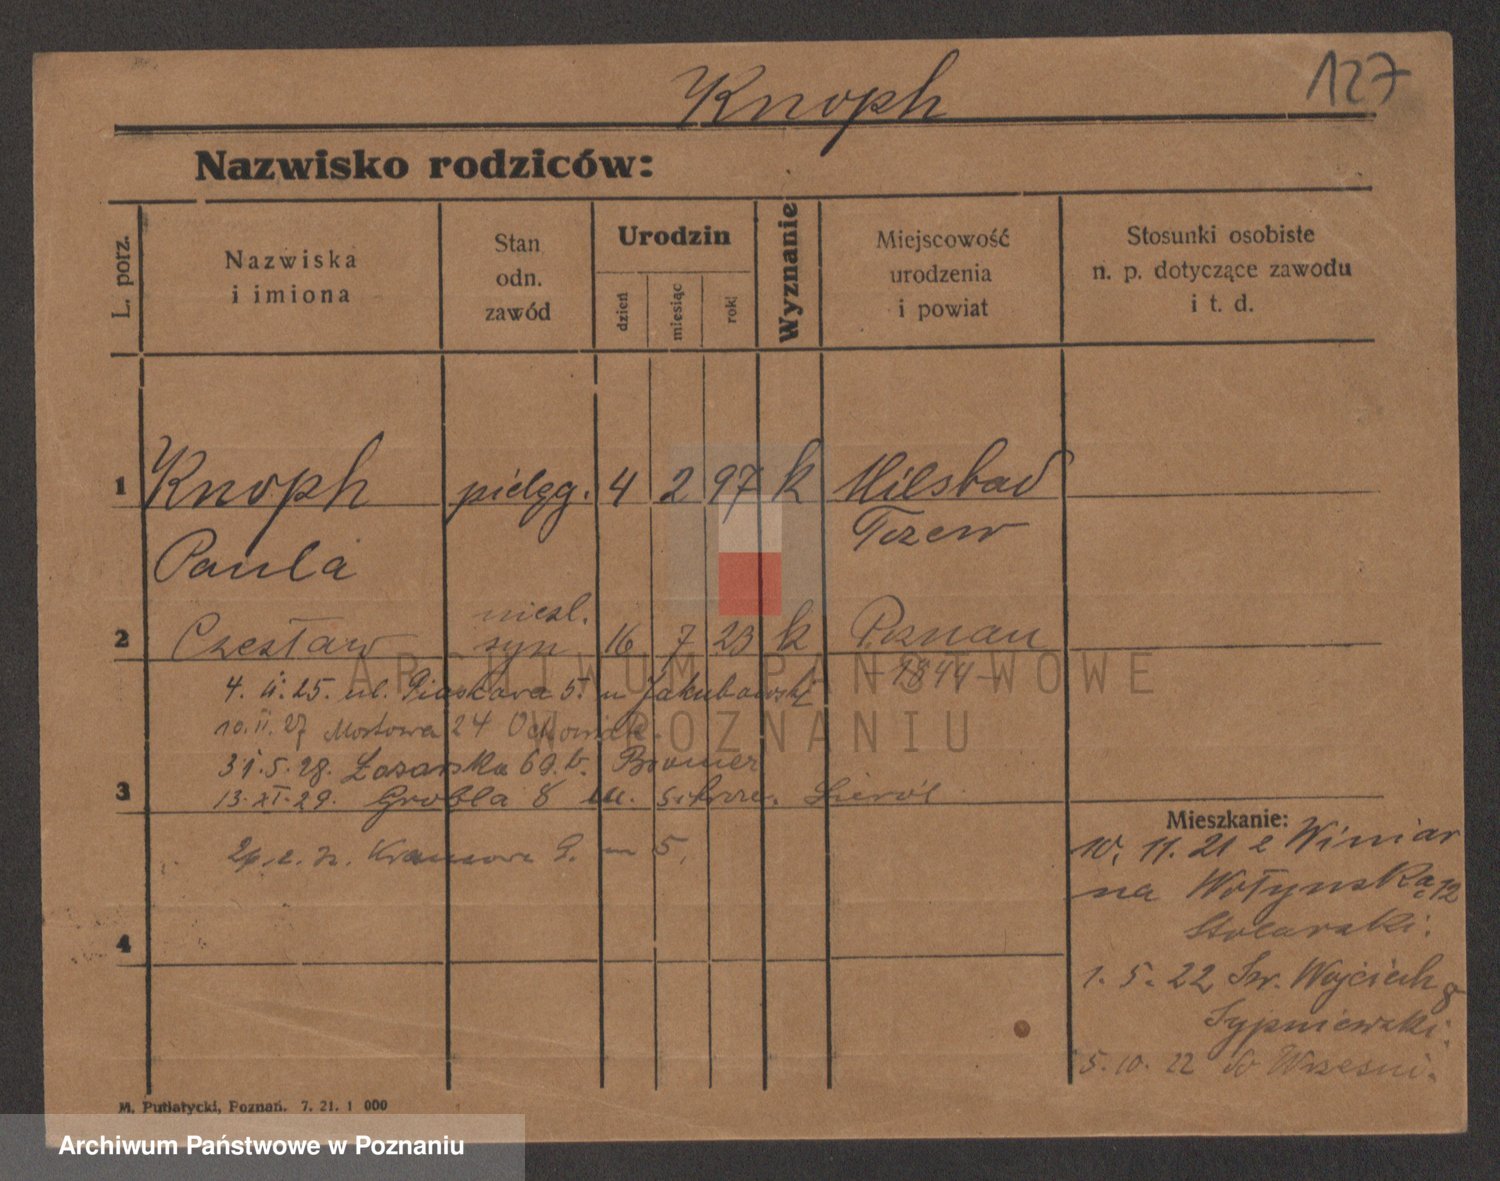 Knoph
127
Nazwisko rodziców:
L. porz.
Nazwiska
i imiona
Stan
odn.
zawód
Urodzin
dzień
miesiąc
rok
Wyznanie
Miejscowość
urodzenia
i powiat
Stosunki osobiste
n. p. dotyczące zawodu
i t. d.
1 Knoph pielęg. 4 2 97 k Hilsbad
Paula Tczew
2 Czesław niezl. syn 16 7 23 k Poznań
-1844-
ARCHIWUM PAŃSTWOWE
W POZNANIU
4. II. 25. ul. Piaskowa 5 m Jakubowski
10. II. 27 Mostowa 24
31.5.28. Łazarska 69.b. Bromer
3
13.XI.29. Grobla 8
Mieszkanie:
10. 11. 21 z Winiar
na Wołyńska 12
Stolarski.
1. 5. 22 Św. Wojciech 8
Sypniewski.
5. 10. 22 do Wrześni.
4
M. Putiatycki, Poznań. 7. 21. 1 000
Archiwum Państwowe w Poznaniu